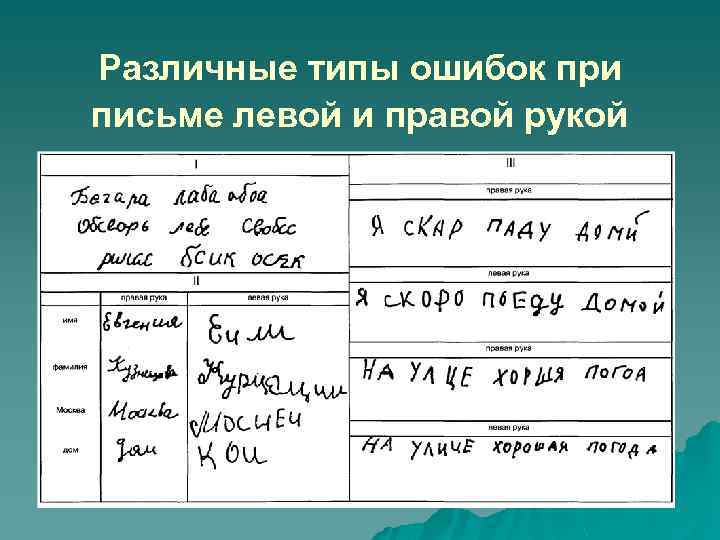 Различные типы ошибок при
письме левой и правой рукой
I
Бегара лаба обоа
лебе
бсик осек
II
правая рука левая рука
имя Евгения Еили
фамилия Кузнецова
Москва Москва
дом дом КОИ
III
правая рука
Я СКАР ПАДУ ДОМИ
левая рука
Я СКОРО ПОЕДУ ДОМОЙ
правая рука
НА УЛЦЕ ХОРШЯ ПОГОА
левая рука
НА УЛИЧЕ ХОРОШАЯ ПОГОДА